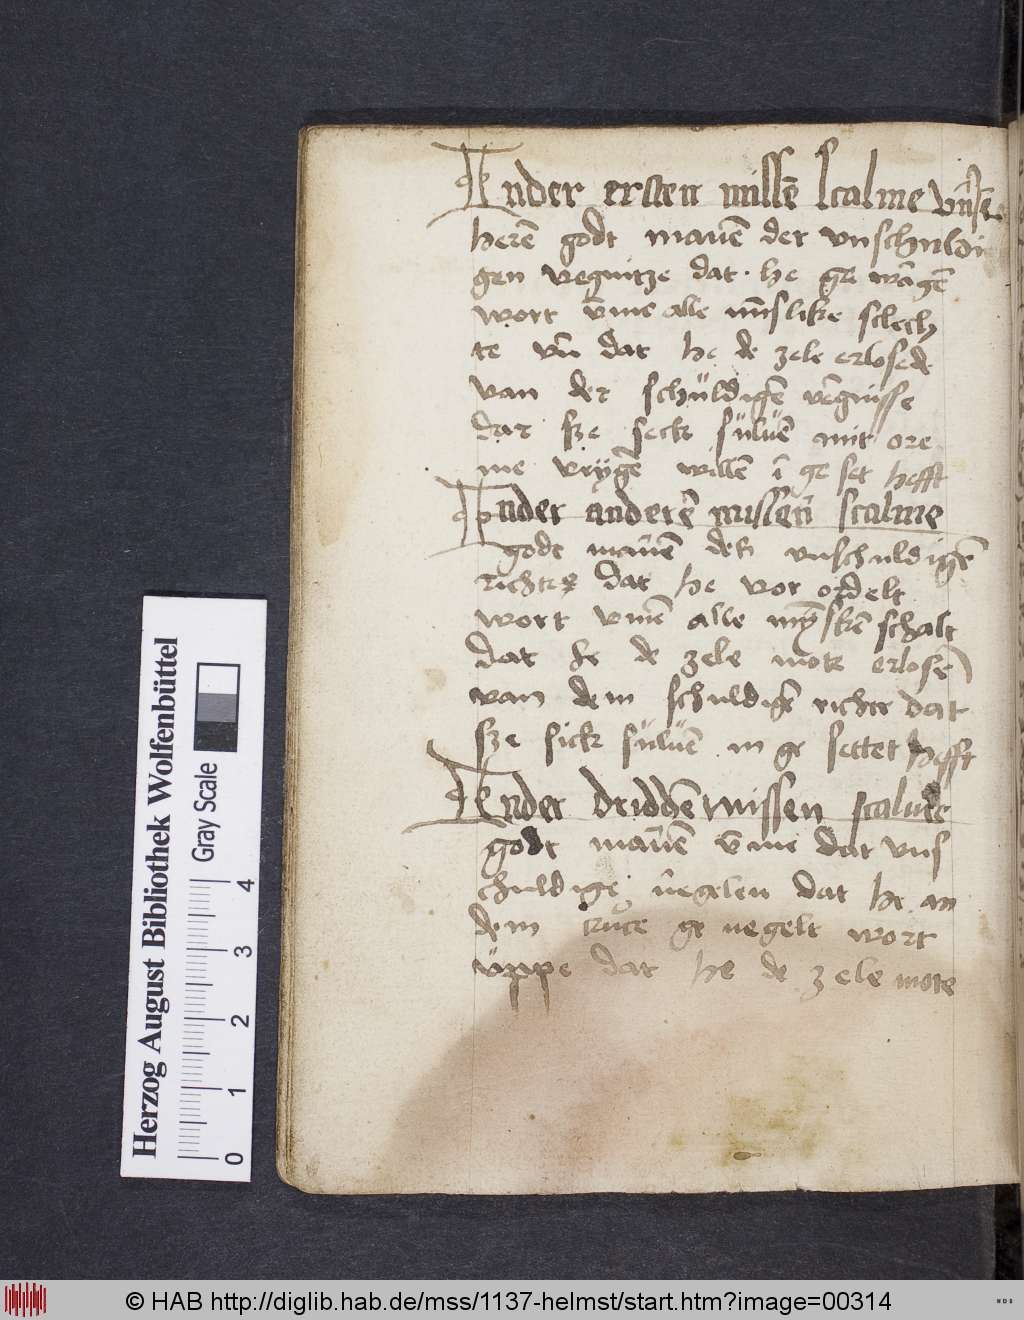 Inder ersten missē scalme vn̄sē
herē godt manē der vnschuldi
gen vegnitze dat he ge vāgē
wort v̄me alle mīslike schlech
te vn̄ dat he de zele erlosede
van der schüldigē vēgnisse
dat sze seck sülüē mit ore
me vrÿgē willē ī ge set hefft
Inder anderē missen scalme
godt manē des vnschuldigē
richtes dat he vor ordelt
wort vmē alle mēskē schalt
dat he de zele mote erlosē
van dem schuldigē richte dat
sze sick sülüē in ge settet hefft
Inder driddē missen scalme
godt manē v̄me dat vns
chuldige negelen dat he an
dem cruce ge negelt wort
üppe dat he de zele mote
Herzog August Bibliothek Wolfenbüttel
Gray Scale
0 1 2 3 4
© HAB http://diglib.hab.de/mss/1137-helmst/start.htm?image=00314